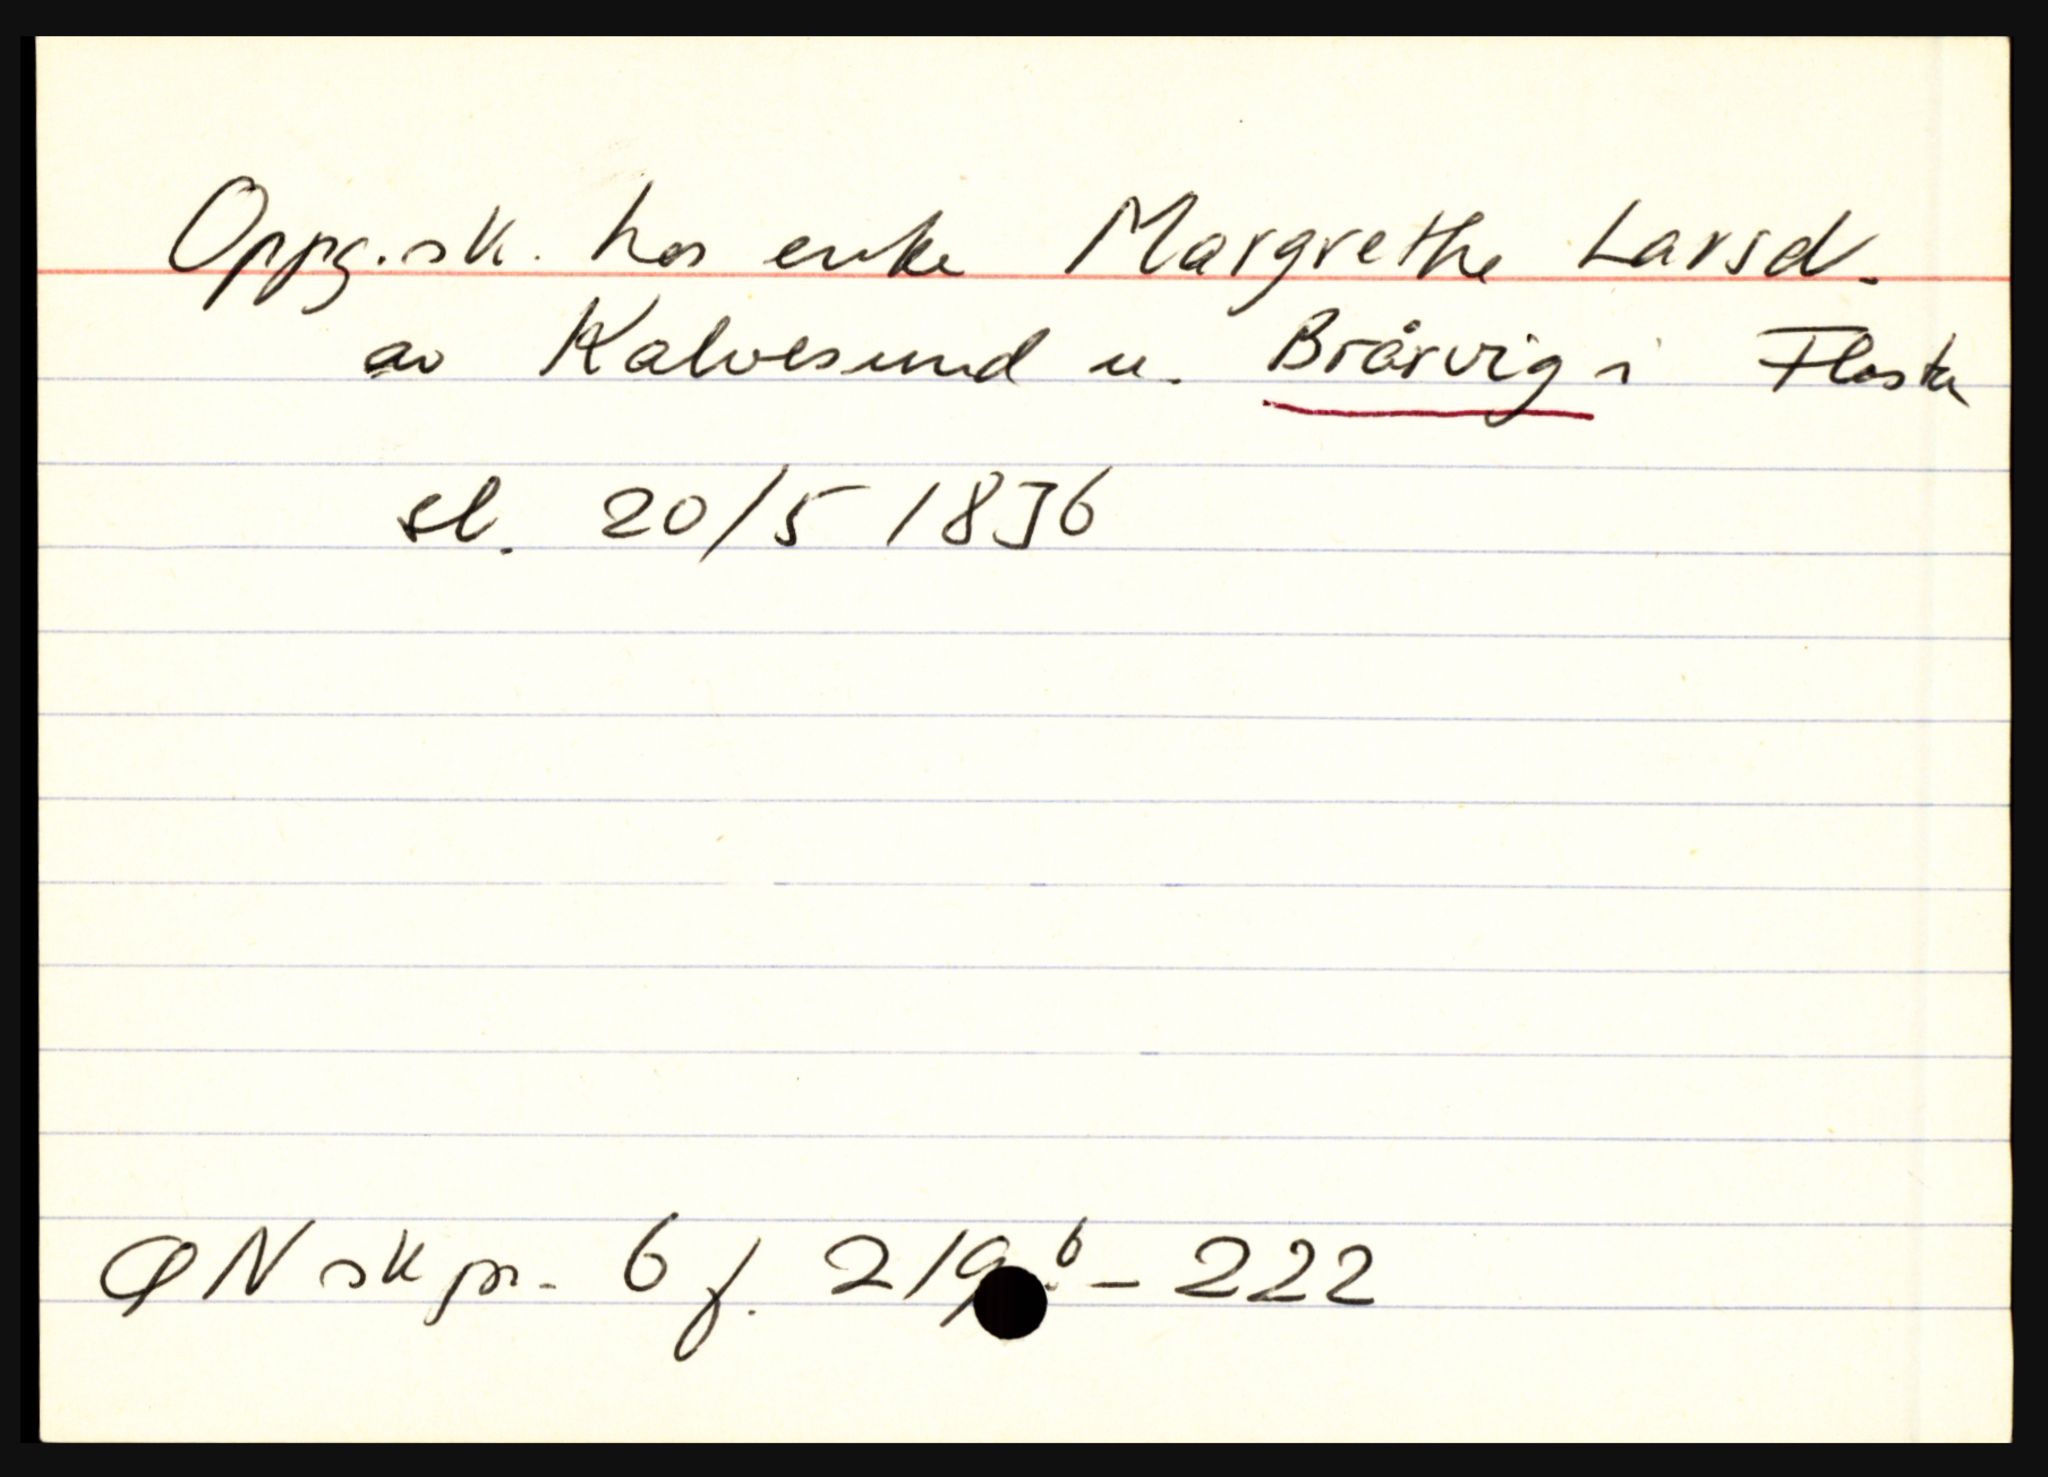 Oppg.sk. hos enke Margrethe Larsd.
av Kalvesund u. Brårvig i Flosta
sl. 20/5 1836
ØN skpr. 6 f. 219 b - 222